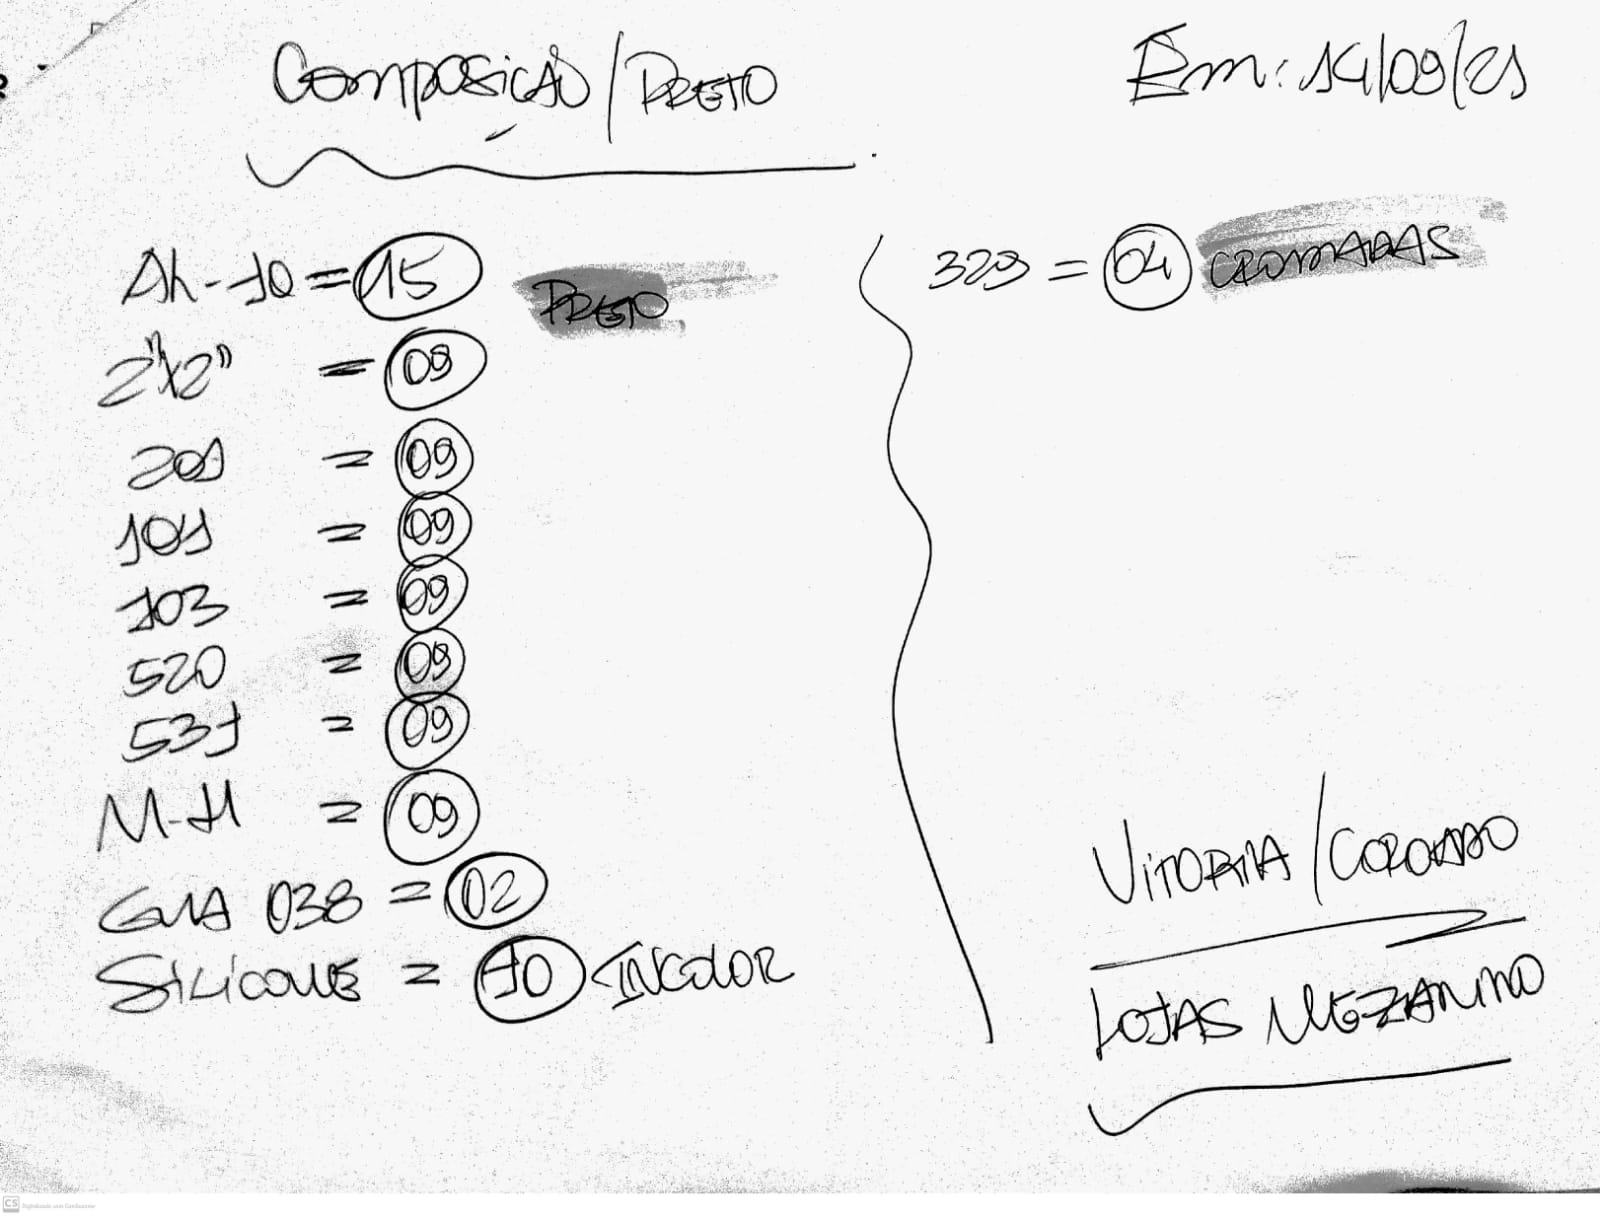 Composição / PRETO
Em: 14/09/21
AL-10 = 15 PRETO
2"x2" = 09
201 = 09
104 = 09
103 = 09
520 = 09
531 = 09
M-H = 09
GUIA 038 = 02
SILICONE = 10 INCOLOR
329 = 04 CROMADAS
VITORIA / COROADO
LOJAS MEZANINO
CS Digitalizado com CamScanner